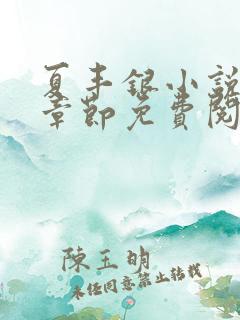 夏丰银小说
章节免费阅
陳玉明
未经同意禁止转载